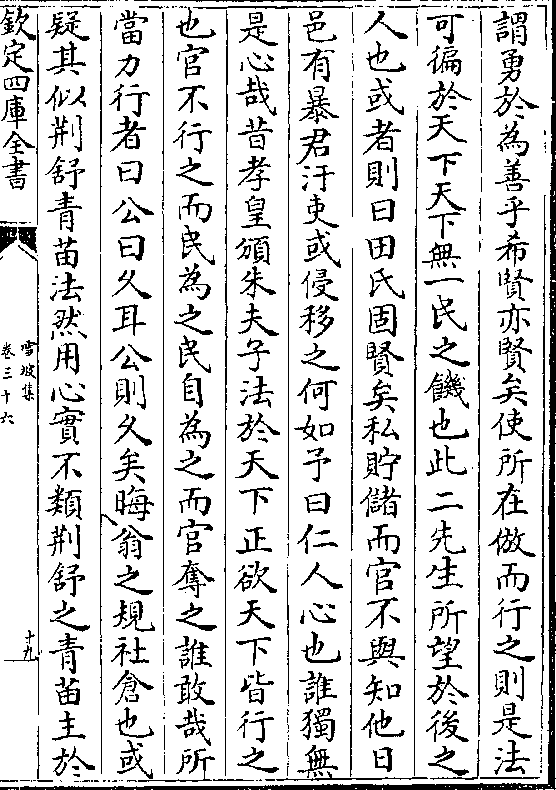 謂勇於為善乎希賢亦賢矣使所在倣而行之則是法
可徧於天下天下無一民之饑也此二先生所望於後之
人也或者則曰田氏固賢矣私貯儲而官不與知他日
邑有暴君汙吏或侵移之何如予曰仁人心也誰獨無
是心哉昔孝皇頒朱夫子法於天下正欲天下皆行之
也官不行之而民為之民自為之而官奪之誰敢哉所
當力行者曰公曰久耳公則久矣晦翁之規社倉也或
疑其似荆舒青苗法然用心實不類荆舒之青苗主於
欽定四庫全書
雪坡集
卷三十六
十九